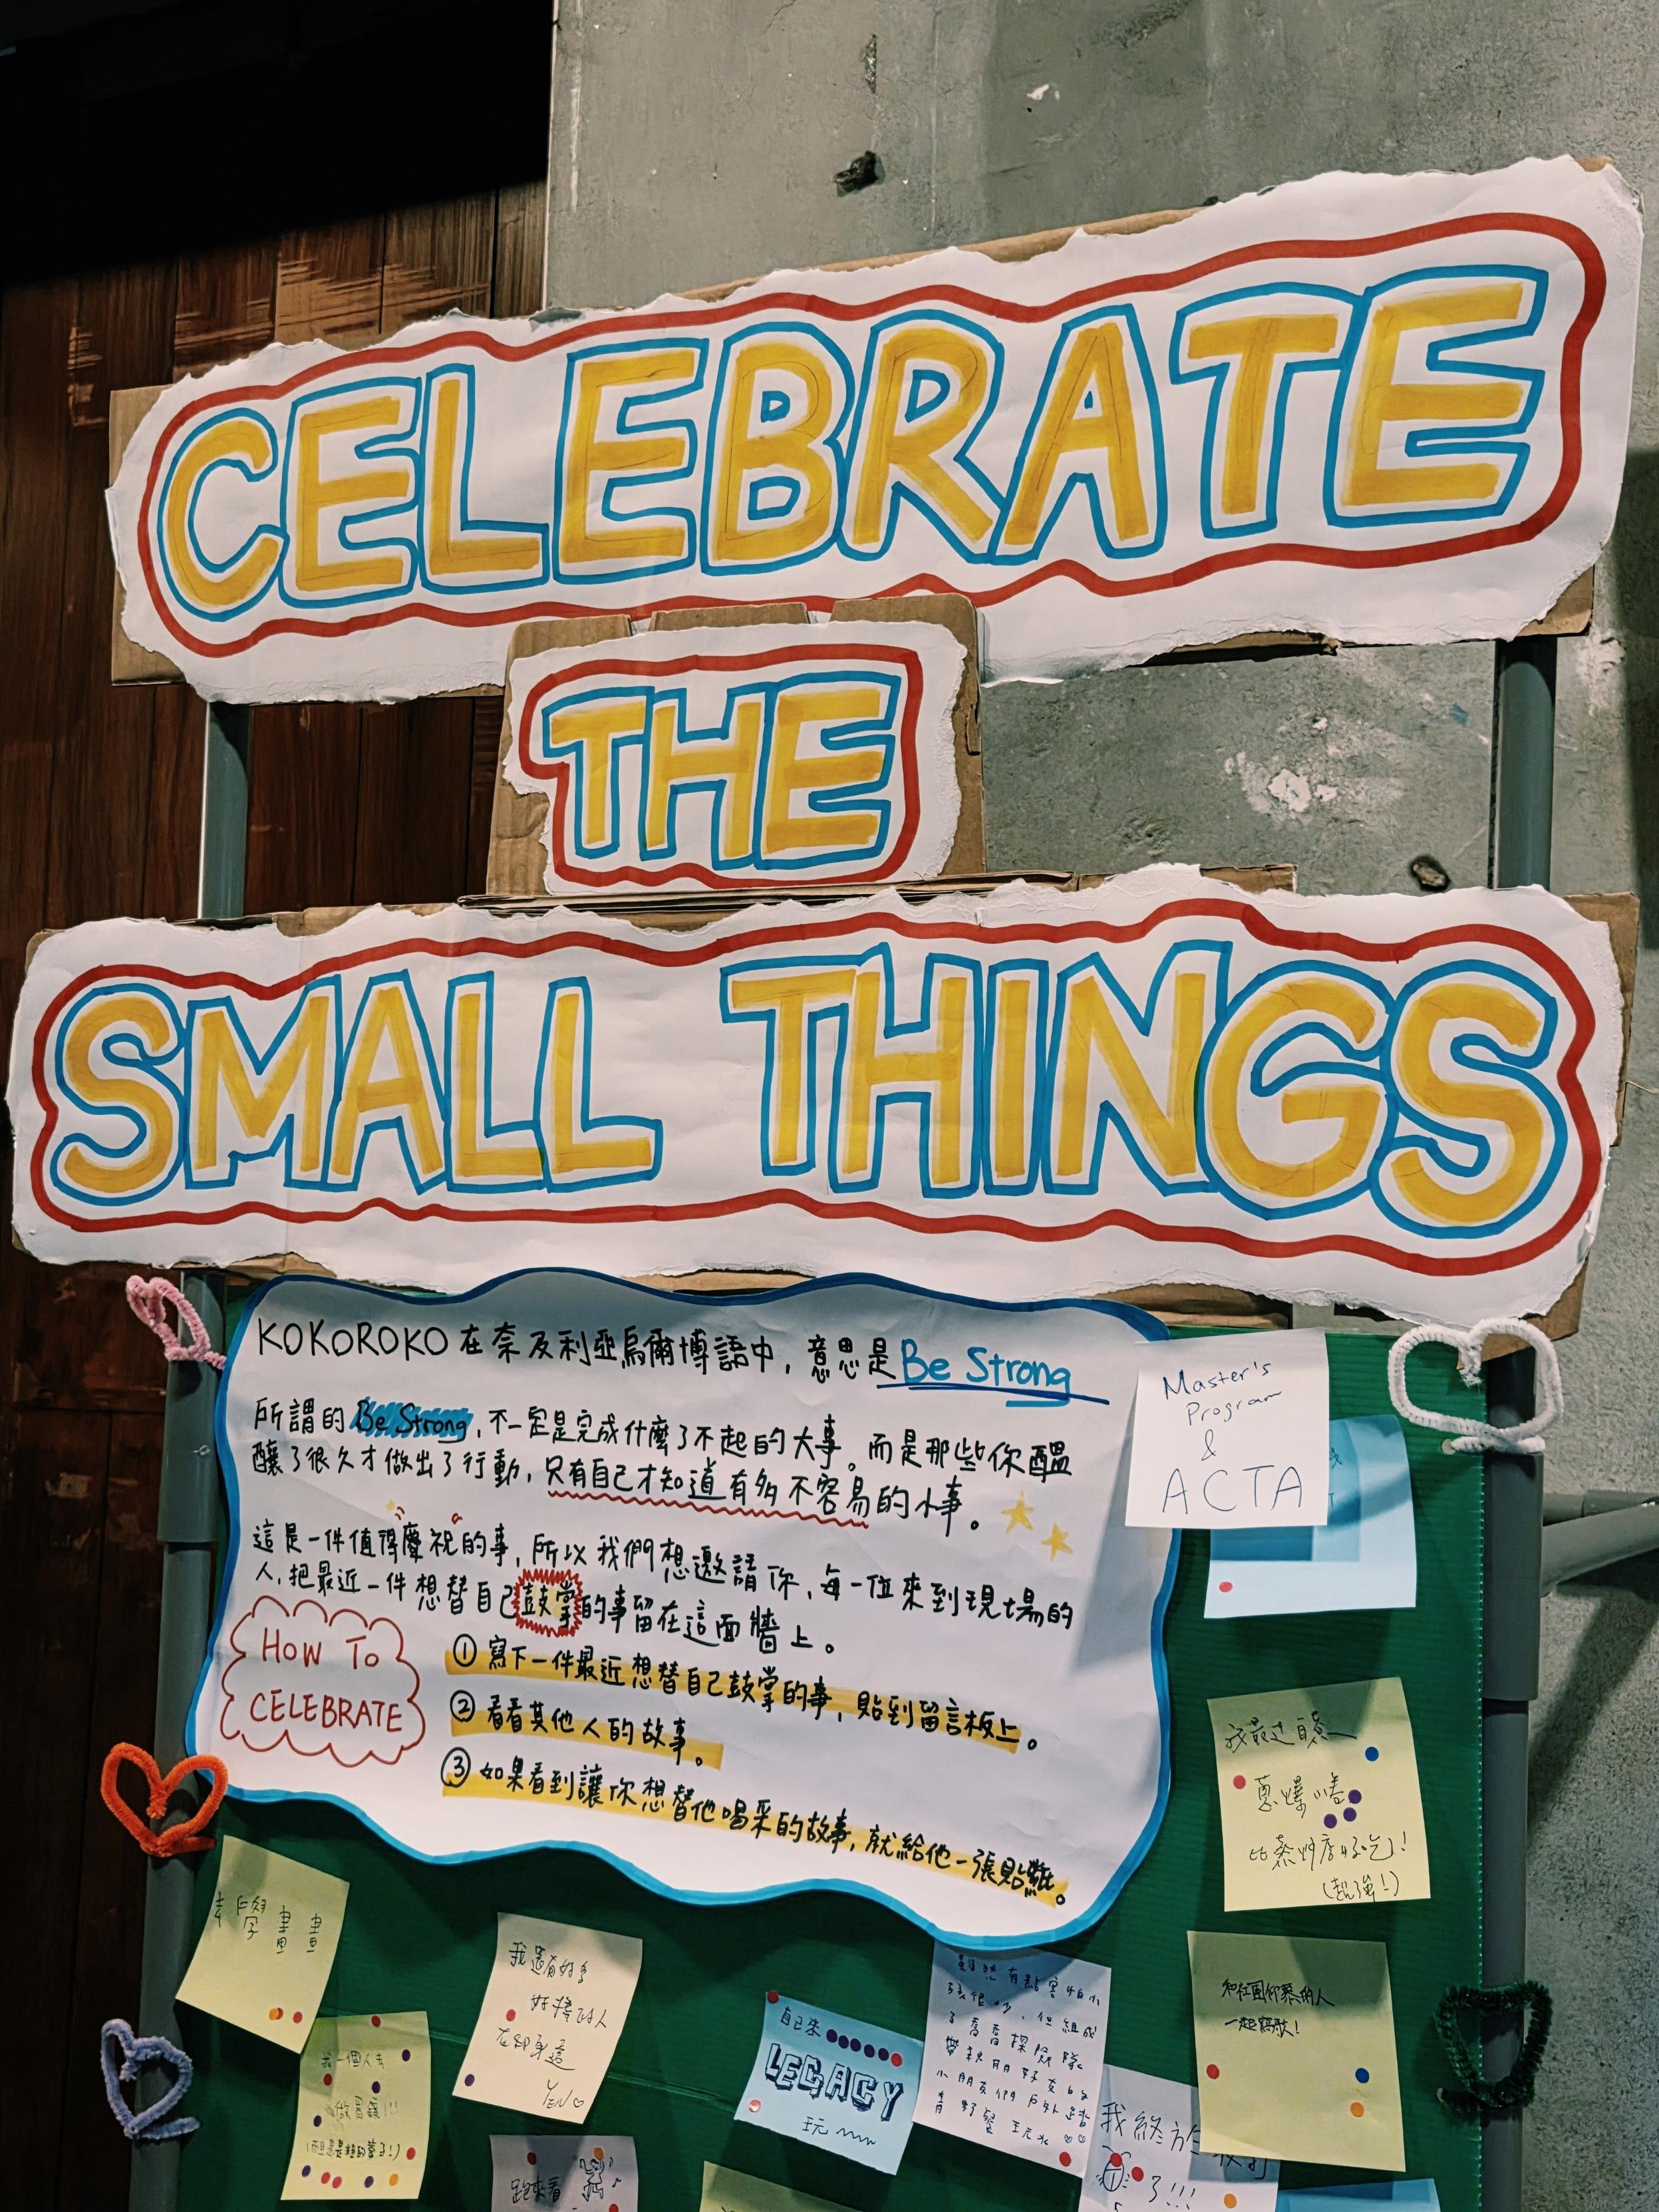 CELEBRATE
THE
SMALL THINGS
KOKOROKO 在奈及利亞烏爾博語中，意思是 Be Strong
所謂的 Be Strong，不一定是完成什麼了不起的大事。而是那些你醞
釀了很久才做出了行動，只有自己才知道有多不容易的小事。
這是一件值得慶祝的事，所以我們想邀請你，每一位來到現場的
人，把最近一件想替自己鼓掌的事留在這面牆上。
HOW TO
CELEBRATE
① 寫下一件最近想替自己鼓掌的事，貼到留言板上。
② 看看其他人的故事。
③ 如果看到讓你想替他喝采的故事，就給他一張貼紙。
Master's
Program
&
ACTA
我最近自煮
比熱炒店好吃！
(超強！)
去學畫畫
我還有好多
好棒的人
在身邊
YEN♡
我一個人去
做眉毛!!!
自己來
LEGACY
玩
雖然有點害怕小
孩很吵，但組成
了喬喬探險隊
帶秋明好友的
小朋友們戶外
青野餐玩水♡♡
和在團仰慕的人
一起寫歌！
我終於
了!!!
跑來看